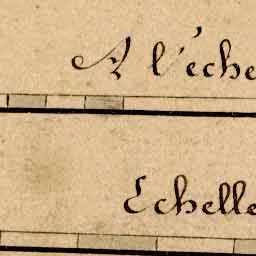 A l'éche
Echelle